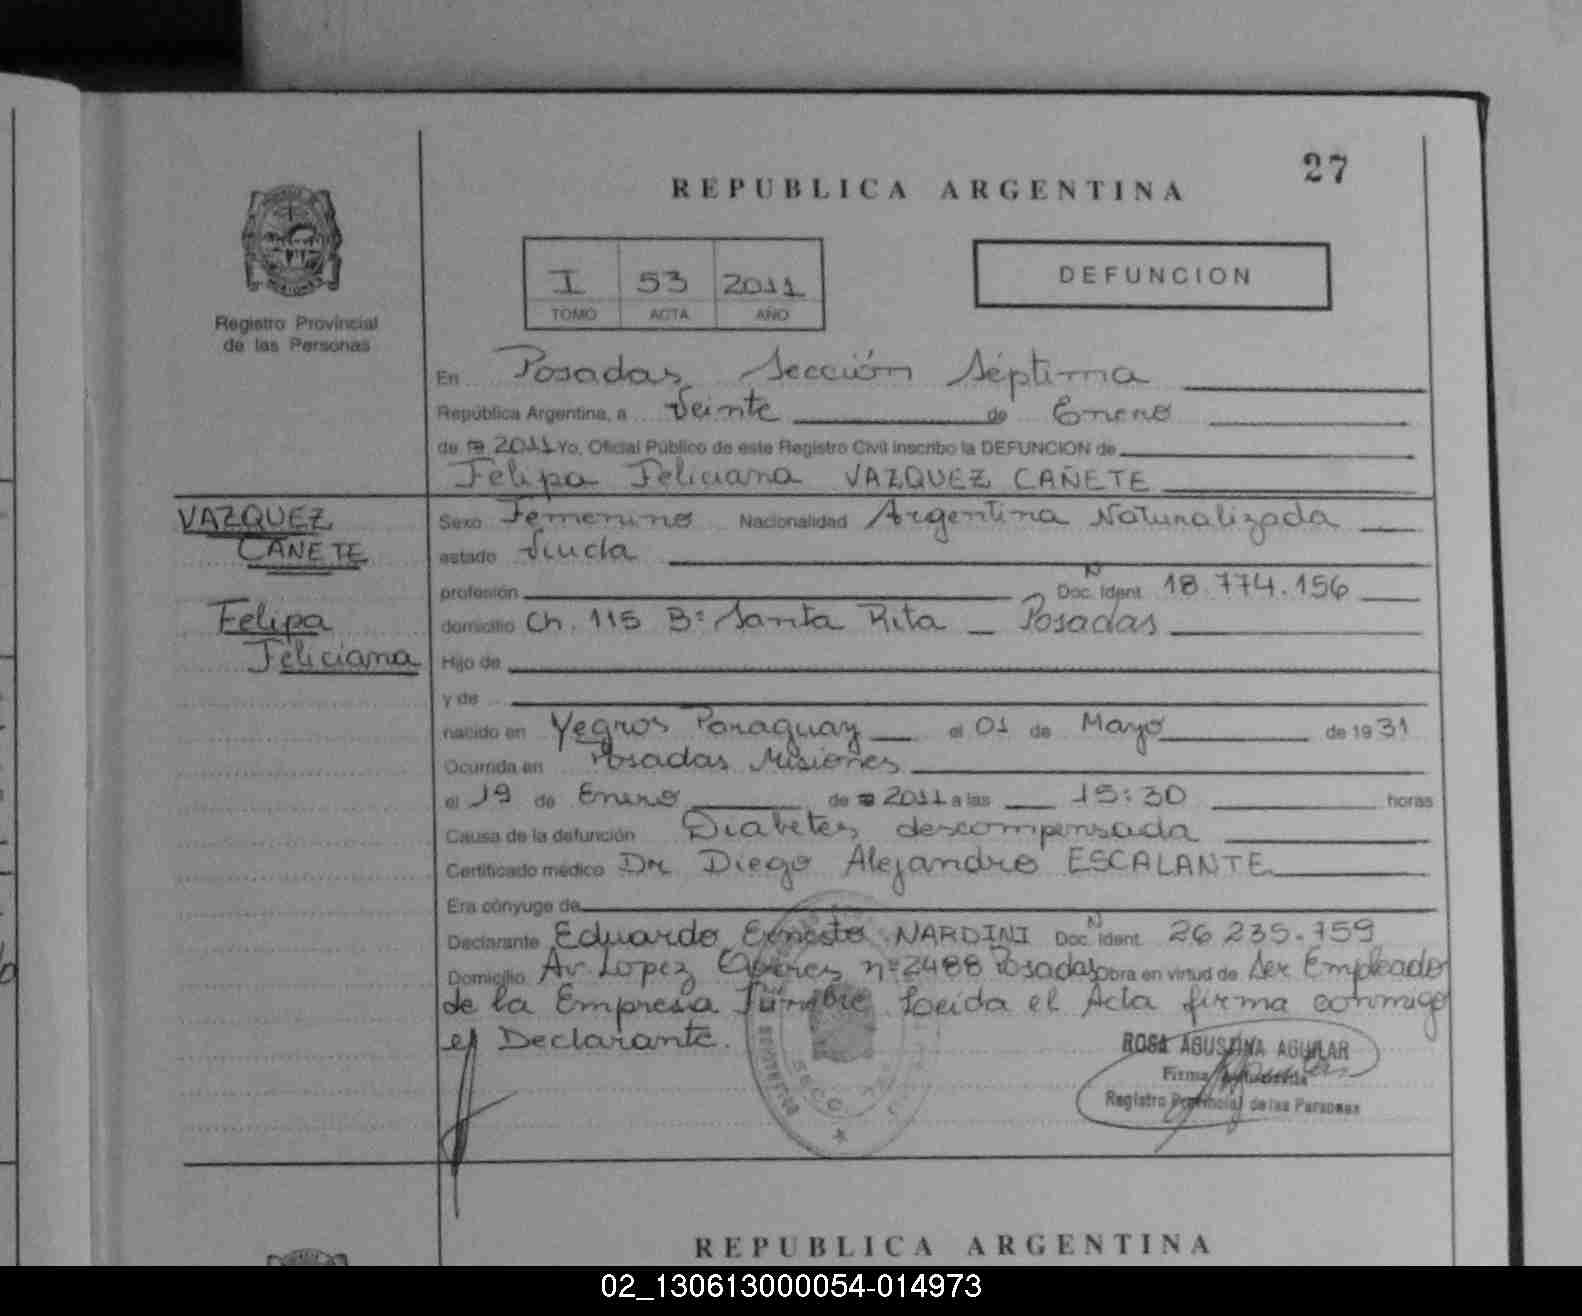 27
REPUBLICA ARGENTINA
I 53 2011
TOMO ACTA AÑO
DEFUNCION
Registro Provincial
de las Personas
En Posadas, Sección Séptima
República Argentina, a Veinte de Enero
de 2011 Yo, Oficial Público de este Registro Civil inscribo la DEFUNCION de
Felipa Feliciana VAZQUEZ CAÑETE
VAZQUEZ
CAÑETE
Felipa
Feliciana
Sexo Femenino Nacionalidad Argentina Naturalizada
estado Viuda
profesión Doc. Ident. N 18.774.156
domicilio Ch. 115 Bº Santa Rita - Posadas
Hijo de
y de
nacido en Yegros Paraguay el 01 de Mayo de 1931
Ocurrida en Posadas Misiones
el 19 de Enero de 2011 a las 15:30 horas
Causa de la defunción Diabetes descompensada
Certificado médico Dr Diego Alejandro ESCALANTE
Era cónyuge de
Declarante Eduardo Ernesto NARDINI Doc. Ident. N 26 235.759
Domicilio Av. Lopez nº 2488 Posadas obra en virtud de Ser Empleado
de la Empresa Fúnebre. Leida el Acta firma conmigo
el Declarante.
ROSA AGUSTINA AGUILAR
Firma
Registro Provincial de las Personas
REPUBLICA ARGENTINA
02_130613000054-014973